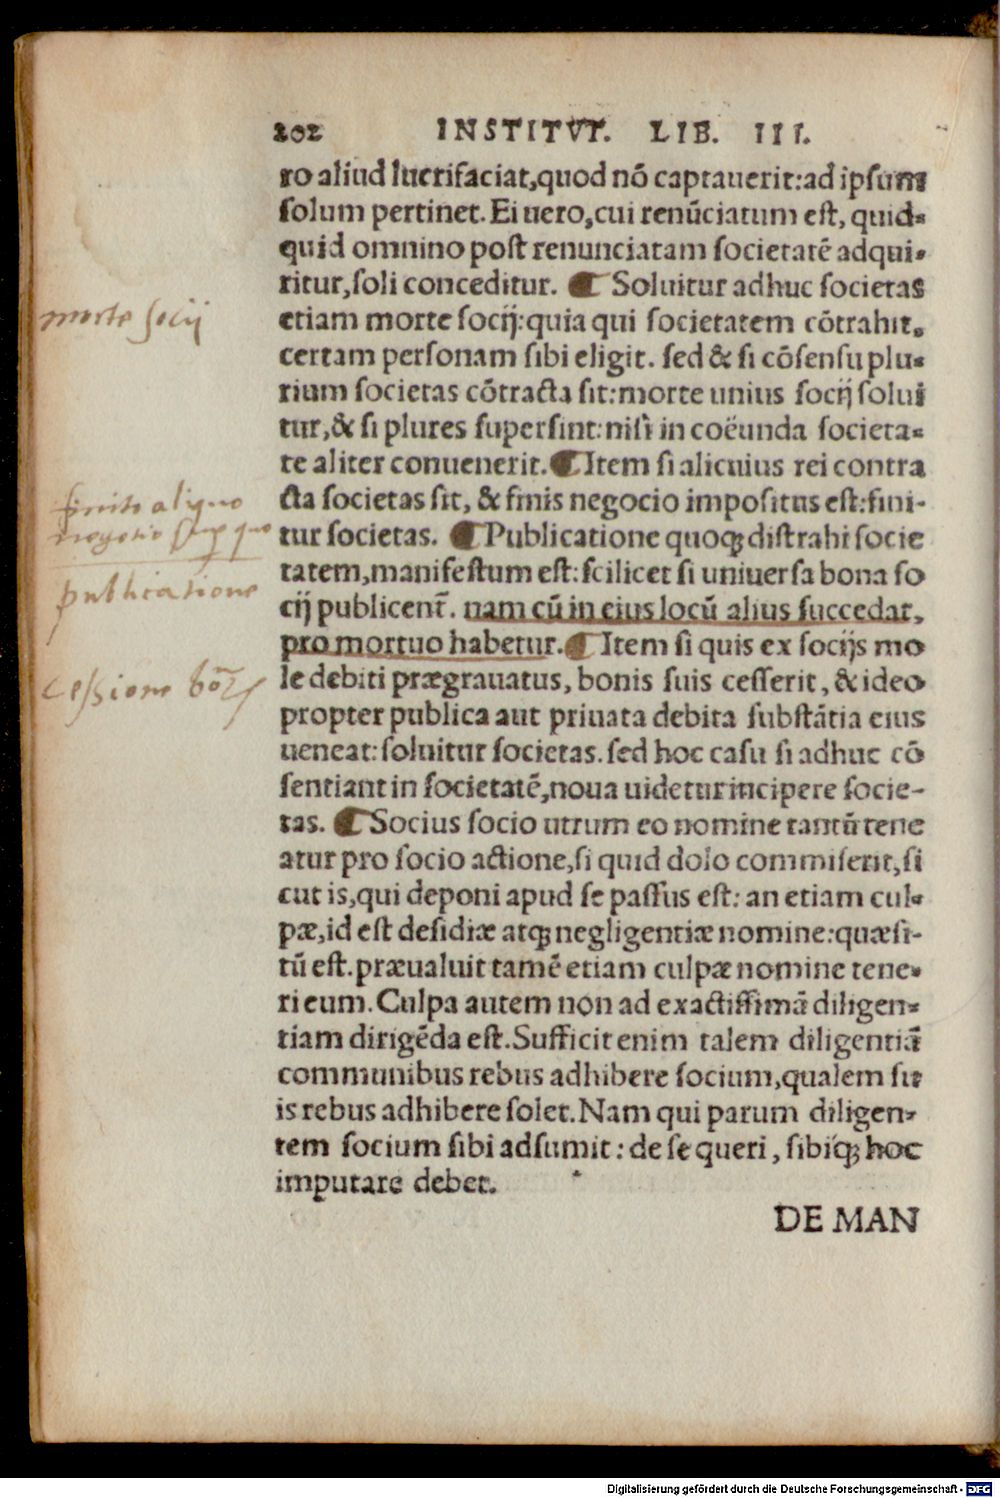 202 INSTITVT. LIB. III.
ro aliud lucrifaciat,quod nō captauerit:ad ipsum
solum pertinet. Ei uero,cui renūciatum est, quid-
quid omnino post renunciatam societatē adqui-
ritur,soli conceditur. ¶ Soluitur adhuc societas
etiam morte socij:quia qui societatem cōtrahit,
certam personam sibi eligit. sed & si cōsensu plu-
rium societas cōtracta sit:morte unius socij solui
tur,& si plures supersint:nisi in coëunda societa-
te aliter conuenerit.¶Item si alicuius rei contra
cta societas sit, & finis negocio impositus est:fini-
tur societas. ¶Publicatione quoqꝫ distrahi socie
tatem,manifestum est:scilicet si uniuersa bona so
cij publicent̃. nam cū in eius locū alius succedat,
pro mortuo habetur.¶ Item si quis ex socijs mo
le debiti prægrauatus, bonis suis cesserit, & ideo
propter publica aut priuata debita substātia eius
ueneat:soluitur societas. sed hoc casu si adhuc cō
sentiant in societatē,noua uidetur incipere socie-
tas. ¶Socius socio utrum eo nomine tantū tene
atur pro socio actione,si quid dolo commiserit,si
cut is,qui deponi apud se passus est: an etiam cul-
pæ,id est desidiæ atqꝫ negligentiæ nomine:quæsi-
tū est. præualuit tamē etiam culpæ nomine tene-
ri eum. Culpa autem non ad exactissimā diligen-
tiam dirigēda est.Sufficit enim talem diligentiā
communibus rebus adhibere socium,qualem su
is rebus adhibere solet. Nam qui parum diligen-
tem socium sibi adsumit: de se queri, sibiqꝫ hoc
imputare debet.
DE MAN
morte socij
finito aliquo
negotio
publicatione
cessione boꝝ
Digitalisierung gefördert durch die Deutsche Forschungsgemeinschaft - DFG